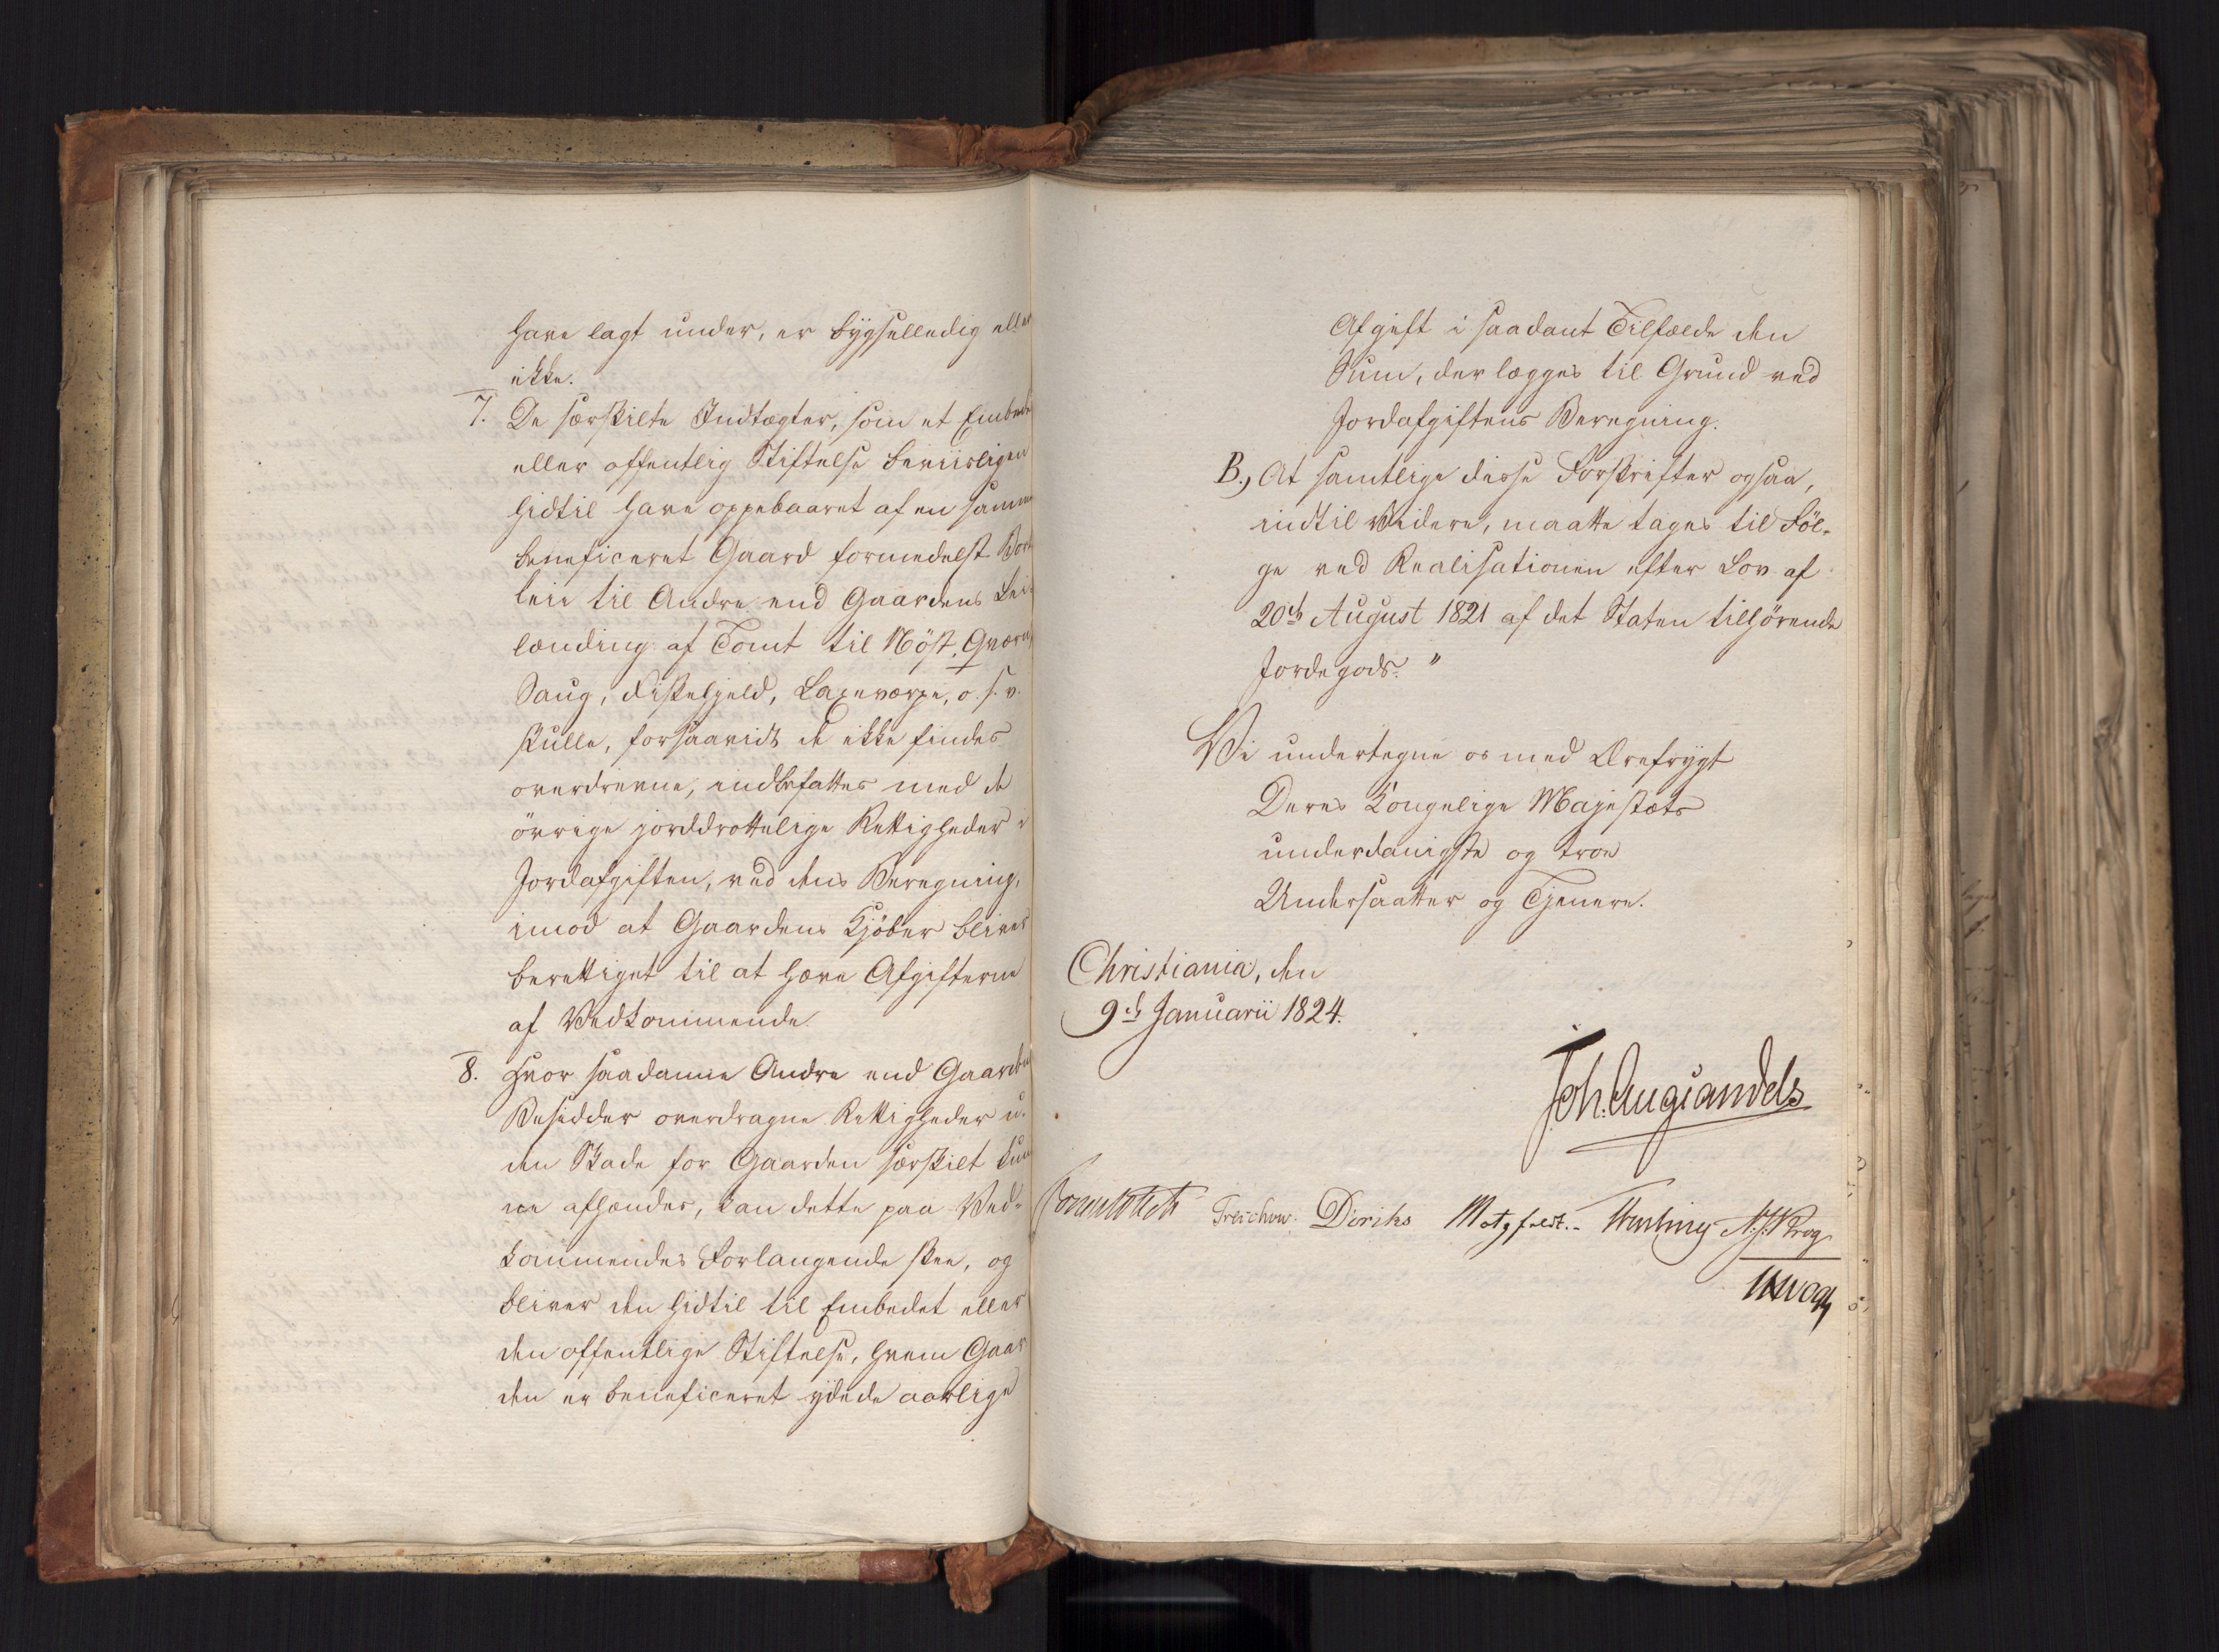 have lagt under, er bygselledig eller
ikke.
7. De særskilte Indtægter, som et Embede
eller offentlig Stiftelse beviisligen
hidtil have oppebaaret af en samme
beneficeret Gaard formedelst Bort
leie til Andre end Gaardens Lei
lænding af Tomt til Nöst, Qværn,
Saug, Fiskehjeld, Laxevarpe, o. s. v.
skulle, forsaavidt de ikke findes
overdrevne, indbefattes med de
övrige jorddrottelige Rettigheder i
Jordafgiften, ved dens Beregning,
imod at Gaardens Kjöber bliver
berettiget til at hæve Afgifterne
af Vedkommende.
8. Hvor saadanne Andre end Gaardens
Besidder overdragne Rettigheder u-
den Skade for Gaarden særskilt kun
ne afhændes, kan dette paa Ved-
kommendes Forlangende skee, og
bliver den hidtil til Embedet eller
den offentlige Stiftelse, hvem Gaar
den er beneficeret ydede aarlige
Afgift i saadant Tilfælde den
Sum, der lægges til Grund ved
Jordafgiftens Beregning.
B., At samtlige disse Forskrifter ogsaa,
indtil Videre, maatte tages til Föl-
ge ved Realisationen efter Lov af
20de August 1821 af det Staten tilhörende
Jordegods. "
Vi undertegne os med Ærefrygt
Deres Kongelige Majestæts
underdanigste og troe
Undersaatter og Tjenere.
Christiania, den
9de Januarii 1824.
Joh. Aug. Sandels
Sommerfeldt Treschow. Diriks Motzfeldt. N. J. Krog